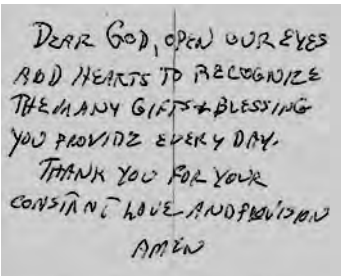 DEAR GOD, OPEN OUR EYES
AND HEARTS TO RECOGNIZE
THE MANY GIFTS & BLESSING
YOU PROVIDE EVERY DAY.
THANK YOU FOR YOUR
CONSTANT LOVE AND PROVISION
AMEN